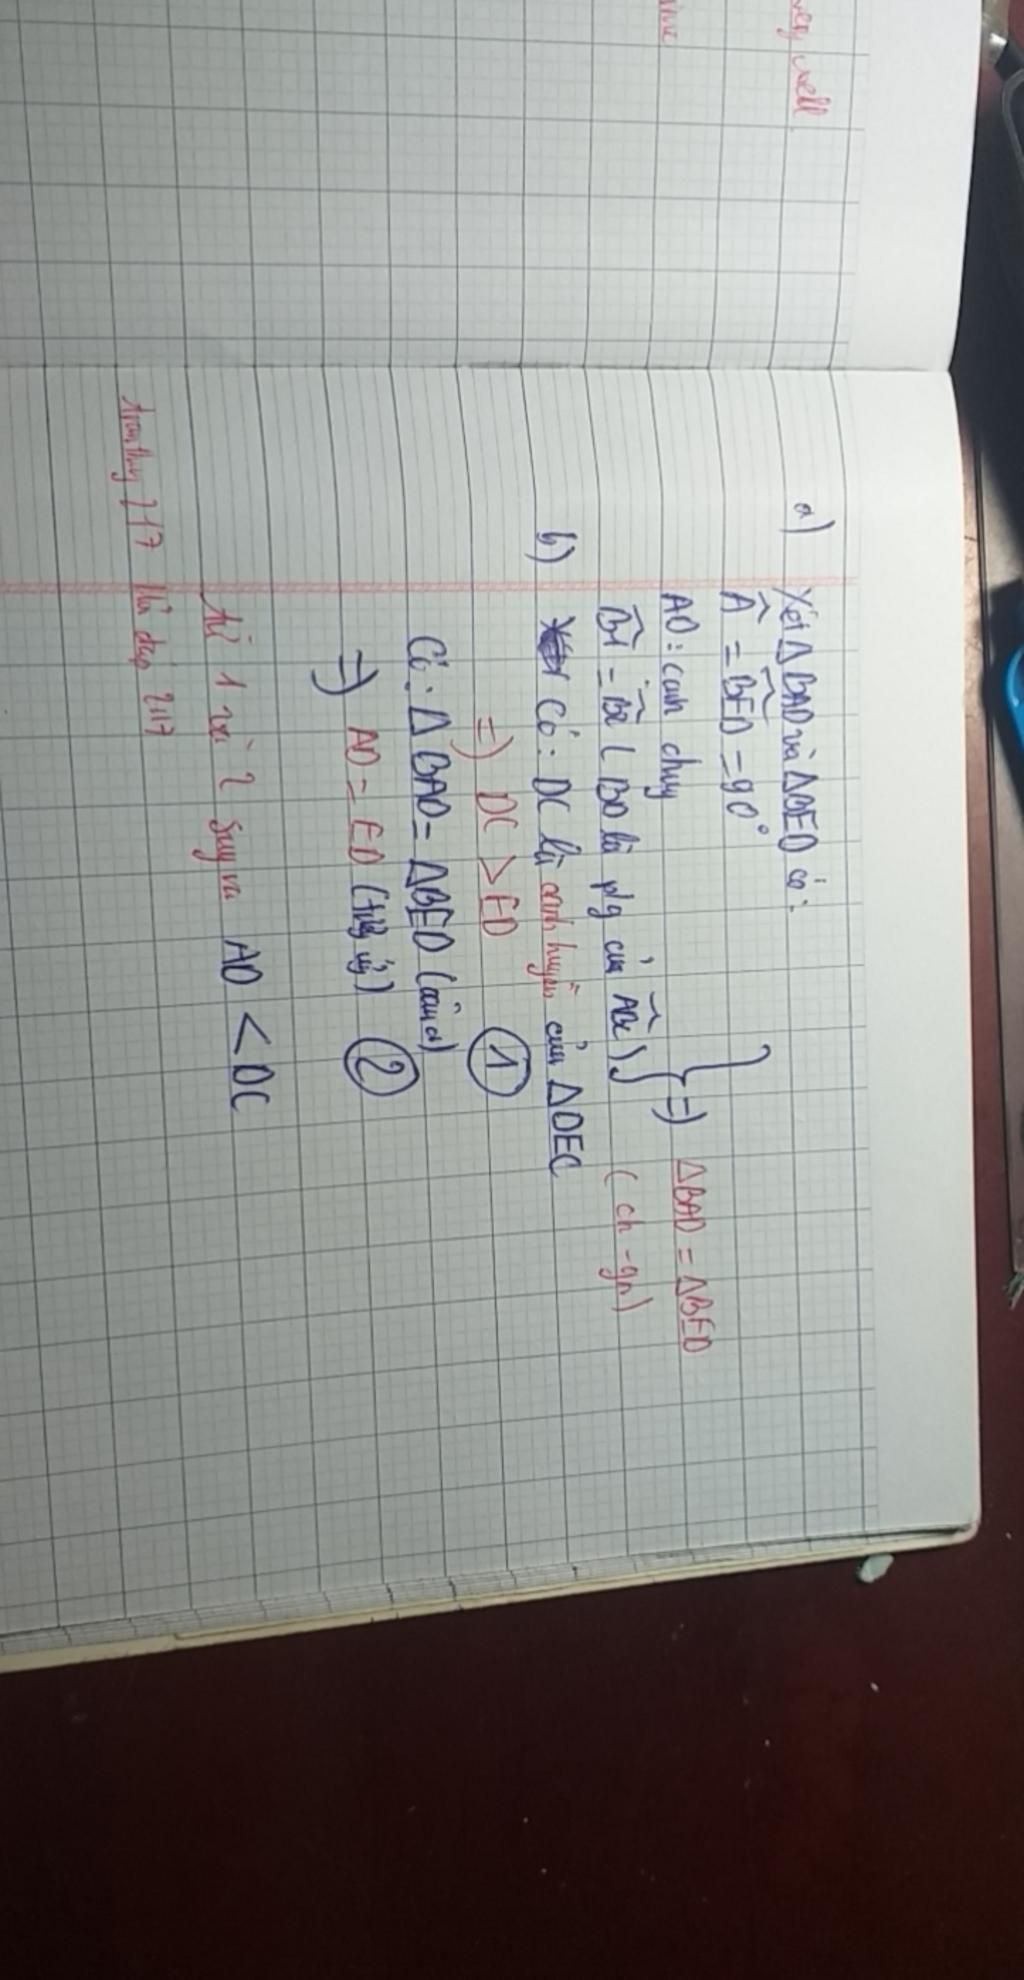 very well.
a) Xét Δ BAD và Δ BED có:
Â = BÊD = 90°
AD: cạnh chug
B̂1 = B̂2 ( BD là p/g của ABC )
} => ΔBAD = ΔBED
( ch - gn )
b) Có: DC là cạnh huyền của ΔDEC
=> DC > ED ①
Có: Δ BAD = ΔBED (câu a)
=> AD = ED (tứg ứg) ②
từ 1 và 2 suy ra AD < DC
2117